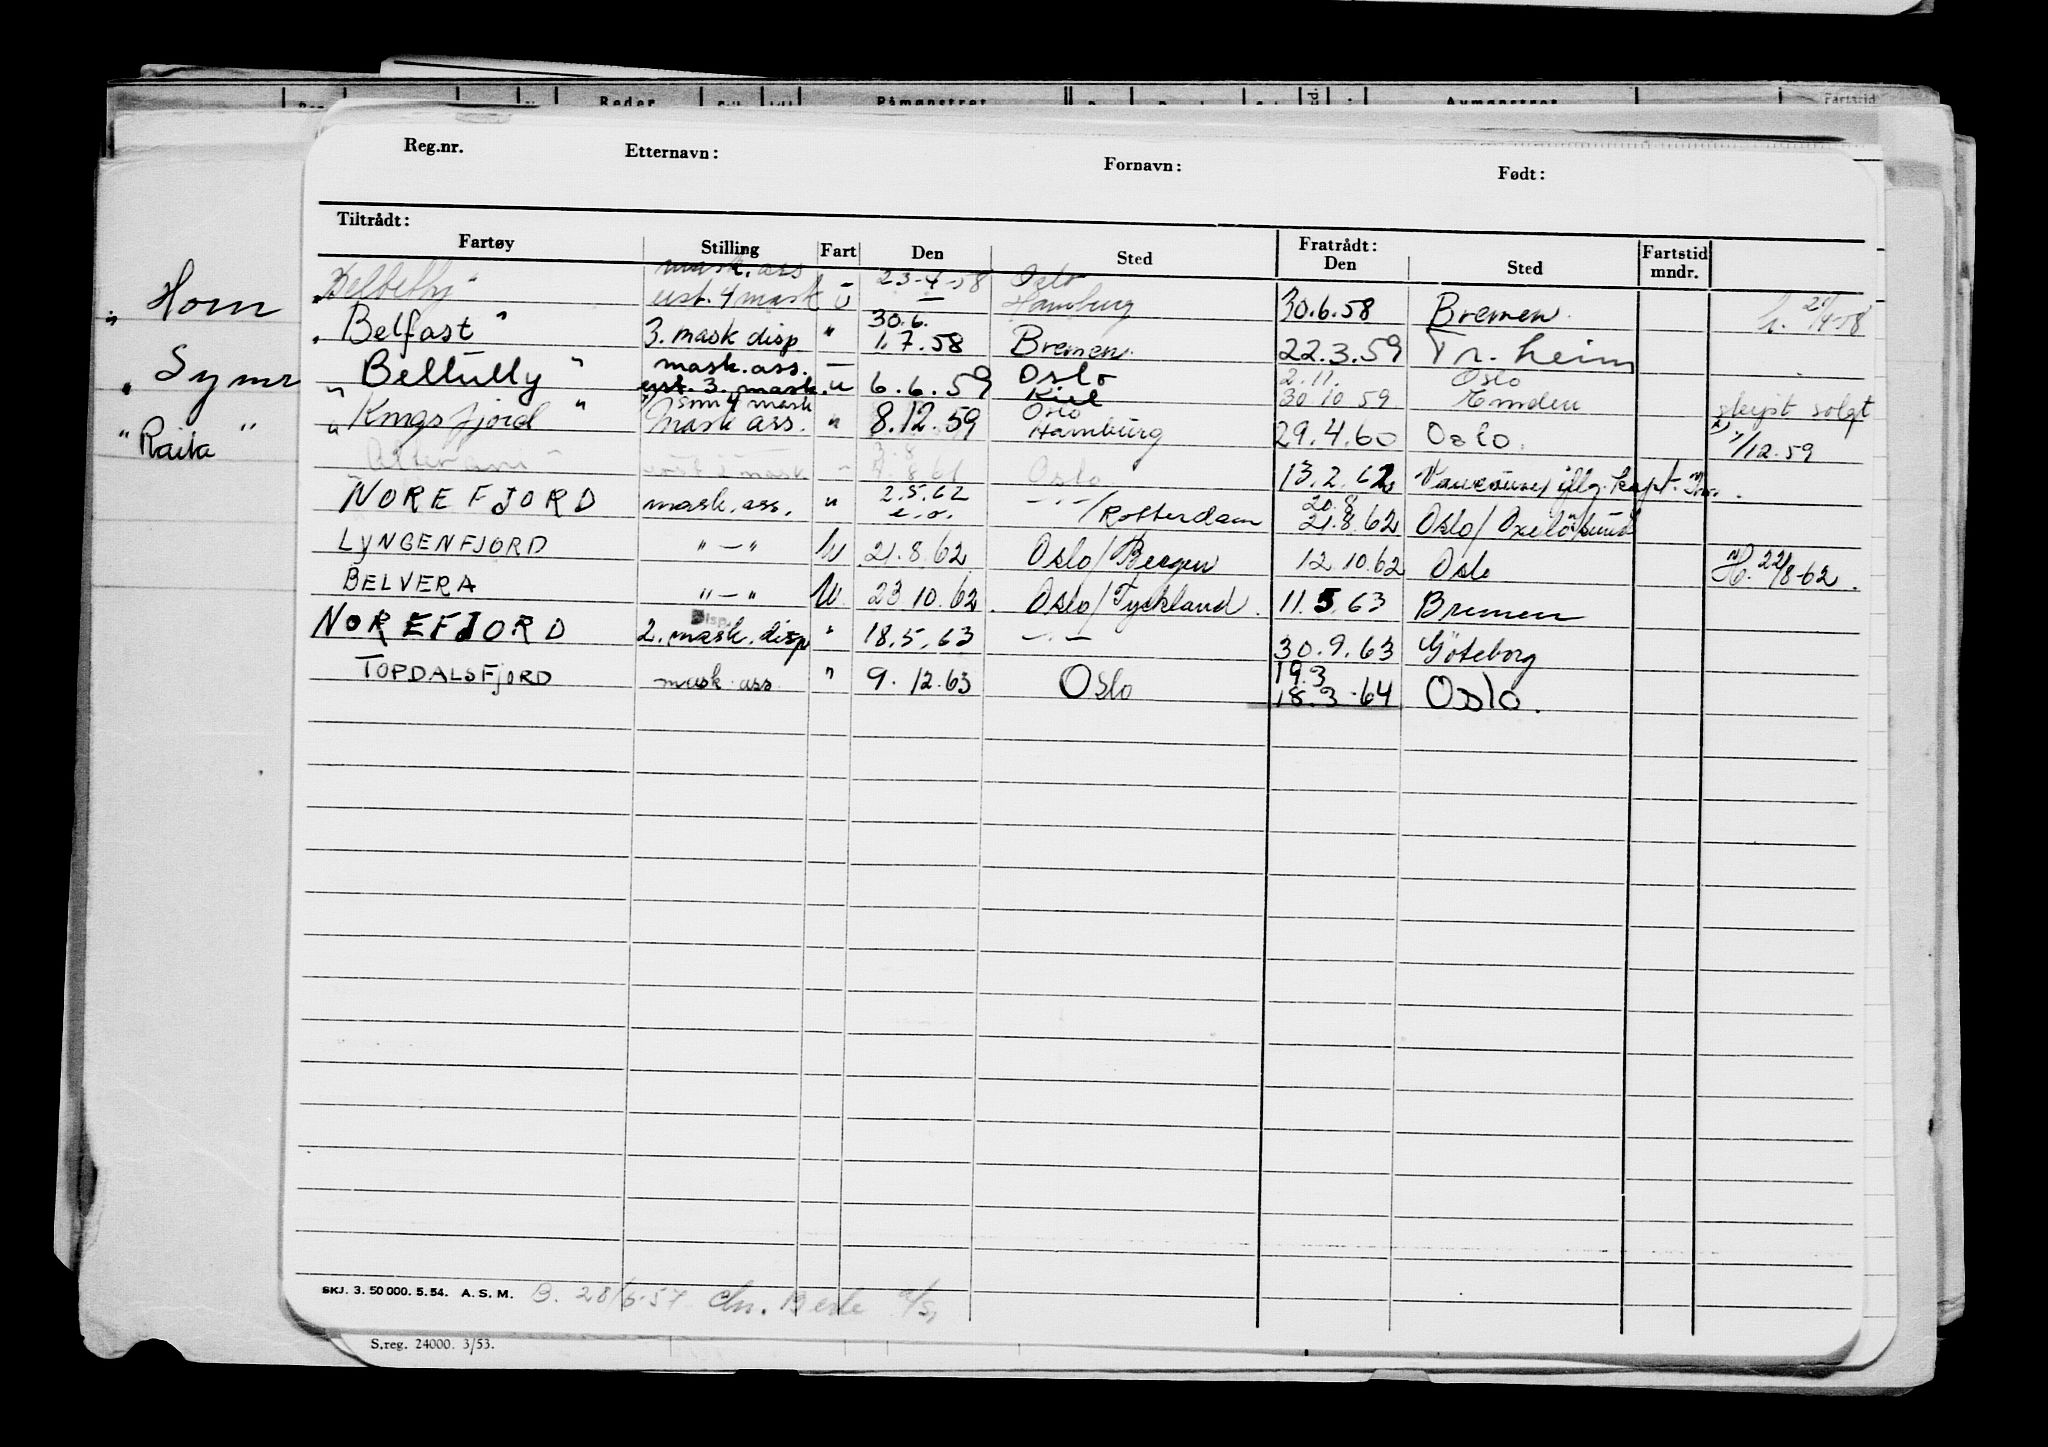 Reder Påmønstret Avmønstret Fartstid
Reg.nr. Etternavn: Fornavn: Født:
Tiltrådt: Fratrådt:
Fartøy Stilling Fart Den Sted Den Sted Fartstid mndr.
" Horn
" Symr
" Raila "
mask. ass 23-4-58 Oslo
erst. 4 mask u — Hamburg 30.6.58 Bremen. h. 21/4-58
30.6.
" Belfast " 3. mask disp " 1.7.58 Bremen. 22.3.59 Tr.heim
mask. ass. — Oslo 2.11. Oslo
" Beltully " erst. 3. mask. u 6.6.59 Kiel 30 10 59 Emden skipt solgt
som 4 mask Oslo
" Kingsfjord " Mask ass. " 8.12.59 Hamburg 29.4.60 Oslo. 7/12.59
3.8
" erst 2 mask. " 4.8.61 Oslo 13.2.62 Vancouver iflg. kapt.
2.5.62 20.8
NOREFJORD mask. ass. " e.o. — " — /Rotterdam 21.8.62 Oslo/Oxelösund
LYNGENFJORD " — " U 21.8.62 Oslo/Bergen 12.10.62 Oslo H. 22/8-62.
BELVERA " — " U. 23 10.62. Oslo/Tyskland. 11.5.63 Bremen
Disp.
NOREFJORD 2. mask. disp " 18.5.63 — " — 30.9.63 Göteborg
19.3
TOPDALSFJORD mask. ass. " 9.12.63 Oslo 18.3-64 Oslo.
SKJ. 3. 50 000. 5.54. A.S.M. B. 28/6-57 Chr. a/s,
S.reg. 24000. 3/53.